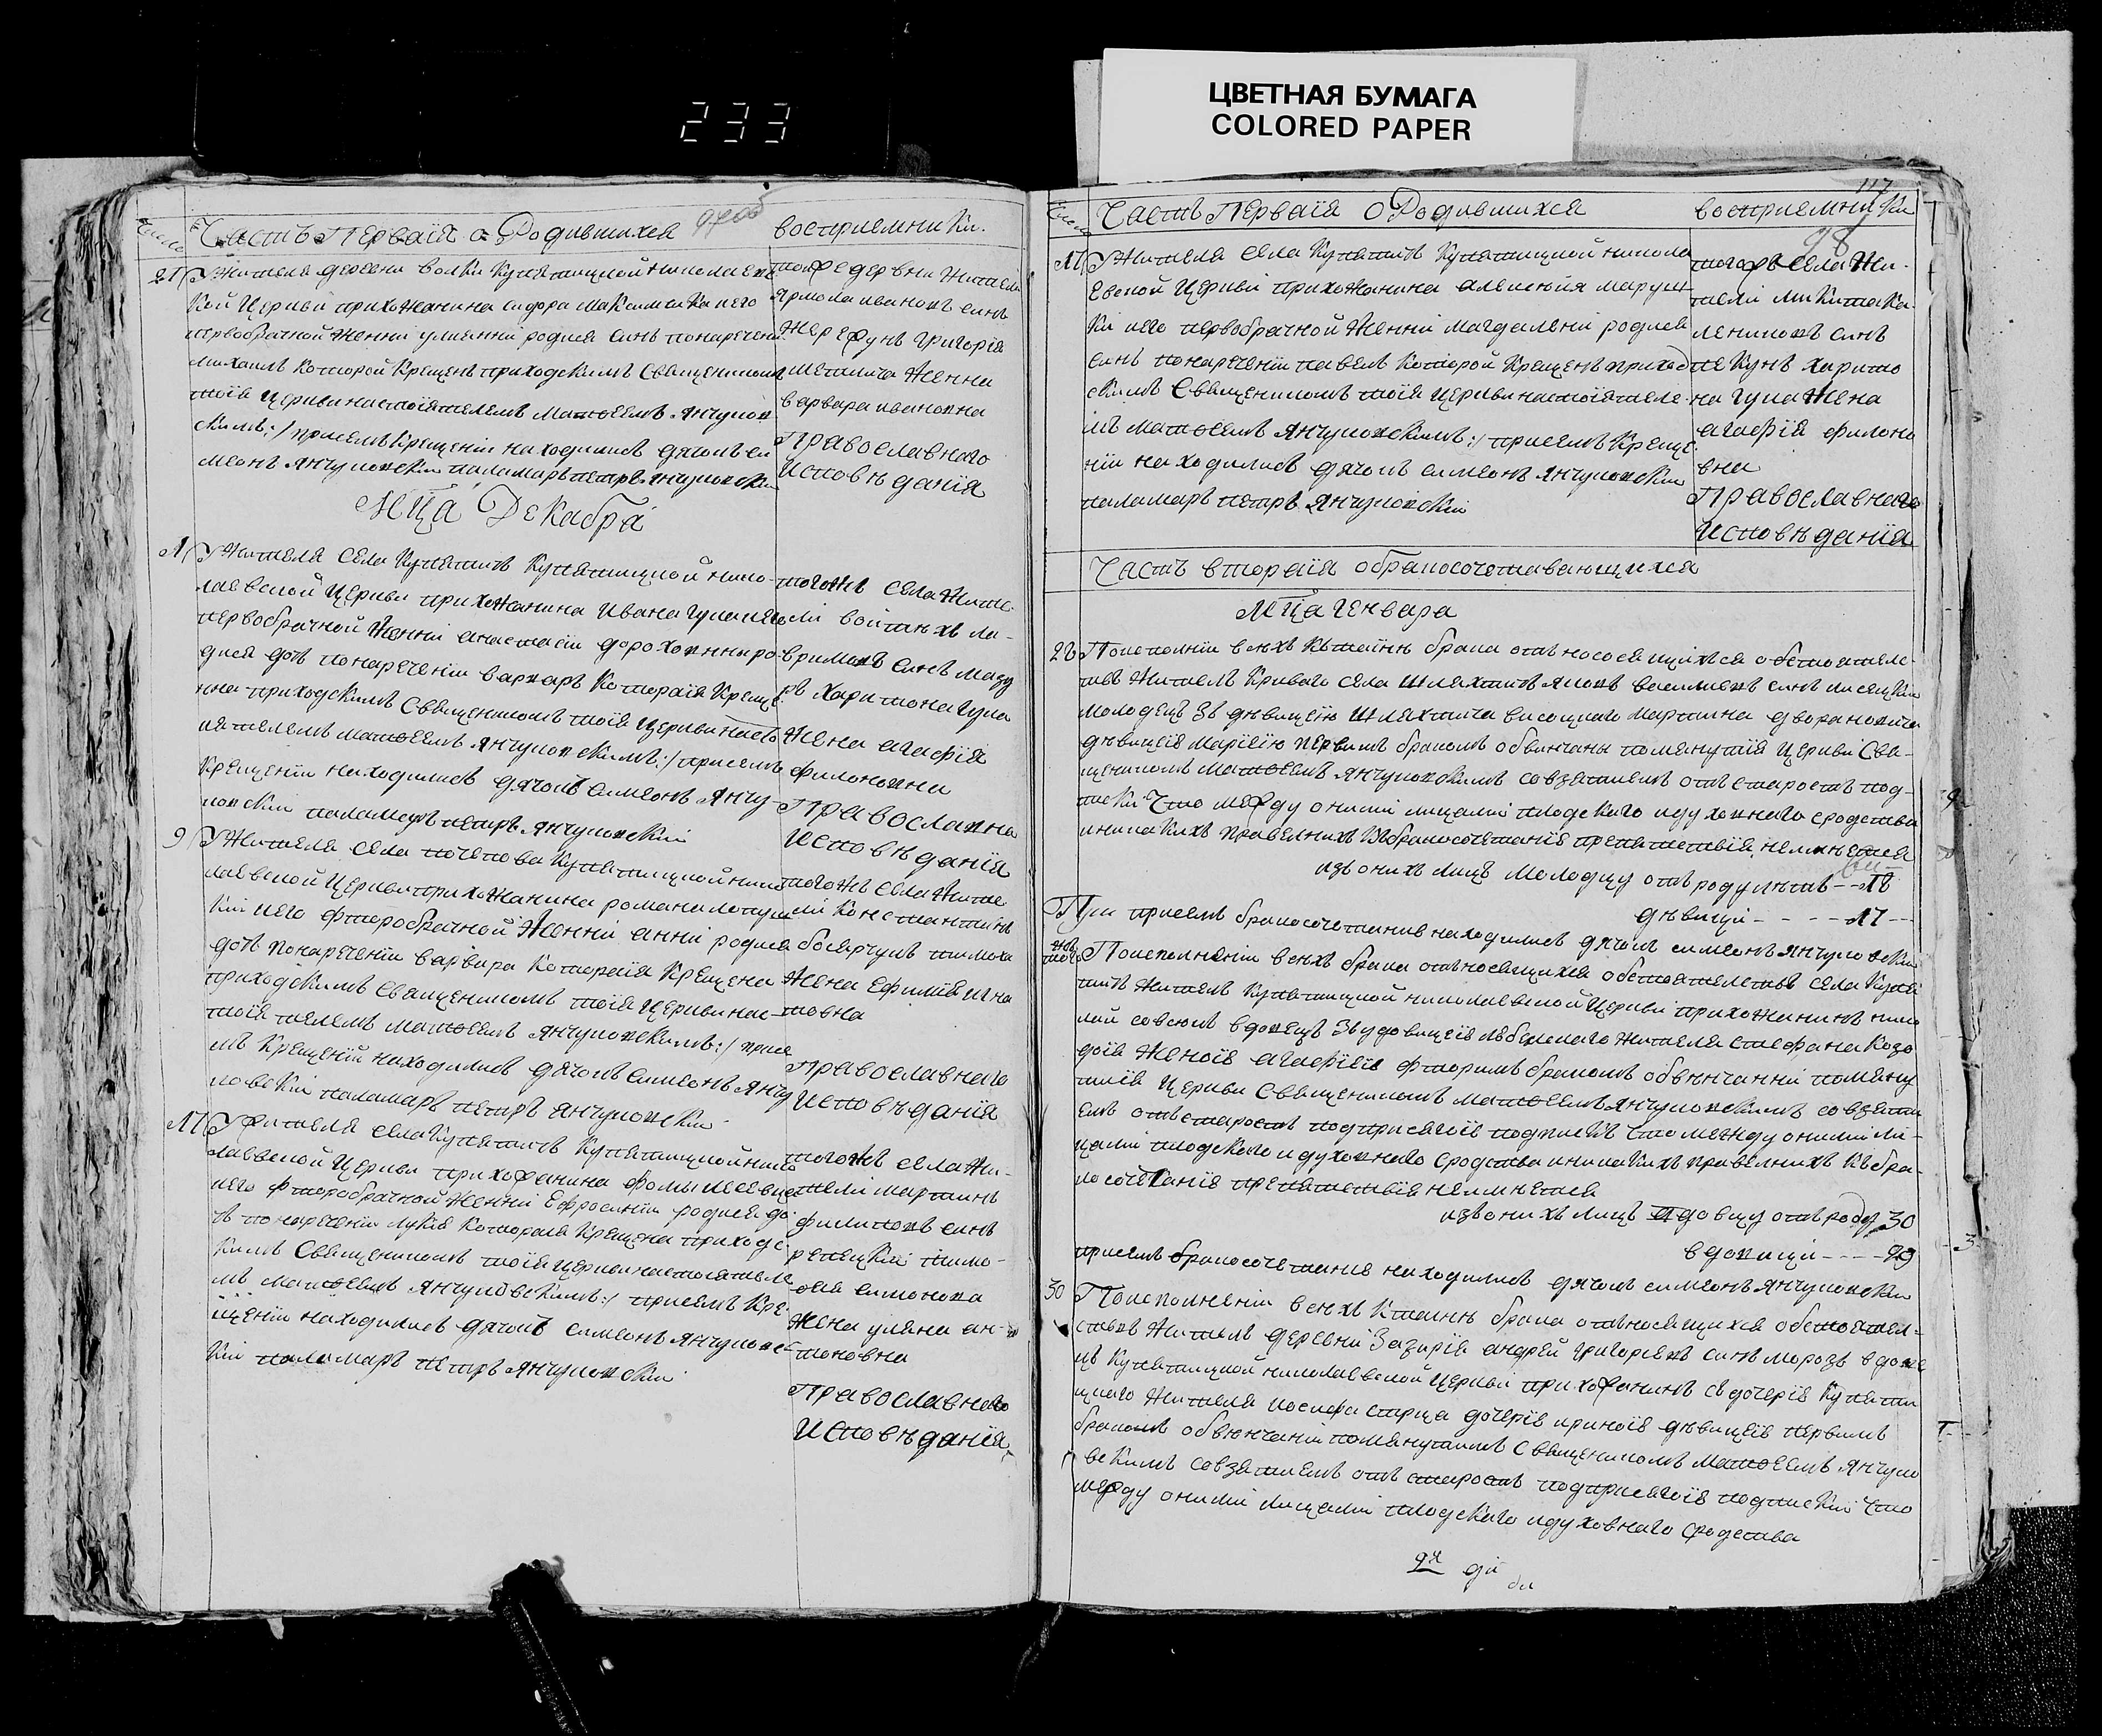 233
ЦВЕТНАЯ БУМАГА
COLORED PAPER
Часть Первая о Родившихся
восприемники.
21 У Жителя деревни волки Купятицкой николаевс
кой Церкви прихожанина сидора максимика и его
первобрачной Женни улиянни родися синъ понаречени
михаилъ которой Крещенъ приходскимъ Священикомъ
тоія Церкви настоіятелемъ матѳеемъ Янчуков
скимъ:/ присемъ Крещеніи находились дячокъ си
меонъ Янчуковски паламаръ петръ Янчуковски
тойже деревни жители
Ярмола ивановъ синъ
Жерефунъ григорія
Женна
варвара ивановна
Православнаго
Исповѣданія
Мца Декабра
1 У Жителя села Купятичъ Купятицкой нико-
лаевской Церкви прихожанина ивана гупала и его
первобрачной Женни анастасіи дорохов­ни ро-
дися дочь понаречении варвара Которая Креще
нна приходскимъ Священикомъ тоія Церкви насто
ятелемъ матѳеемъ Янчуковскимъ:/ присемъ
Крещеніи находились дячокъ симеонъ Янчу-
ковски паламаръ петръ Янчуковскій
тогожъ села Жите-
ли войтехъ ла-
вриновъ синъ мазу
ръ харитона гупа
Жена агафія
филоновна
Православна
Исповѣданія
9 У Жителя села почапова Купятицкой нико
лаевской Церкви прихожанина романа лопу
ки и его фторобрачной Женни анни родися
дочь понаречении варвара Которая Крещена
приходскимъ Священикомъ тоія Церкви нас-
тоіятелемъ матѳеемъ Янчуковскимъ:/ присе
мъ Крещеніи находились дячокъ симеонъ Янчу
ковскій паламаръ петръ Янчуковски
тогожъ села Жите
ли Константинъ
боярчукъ тимоха
Жена Ефимия игна
товна
Православнаго
Исповѣданія
17 У Жителя села Купятичъ Купятицкой нико
лаевской Церкви прихожанина фомы
него фторобрачной Женни Ефросинии родися до
чъ понаречении лукия Которая Крещена приходс-
кимъ Священикомъ тоія Церкви настоіятеле
мъ матѳеемъ Янчуковскимъ:/ присемъ Кре-
щеніи находились дячокъ симеонъ Янчуковс-
кій паламаръ петръ Янчуковски
тогожъ села Жи-
тели мартинъ
филиповъ синъ
репецкій тимо-
фея симонова
Жена уляна ан-
тоновна
Православнаго
Исповѣданія
117
98
Часть Первая о Родившихся
восприемники
17 У Жителя села Купятичъ Купятицкой никола
евской Церкви прихожанина алексия маруш
ки и его первобрачной Женни магдалени родися
синъ понаречении павелъ Которой Крещенъ приход
скимъ Священикомъ тоія Церкви настоіятеле-
мъ матѳеемъ Янчуковскимъ:/ присемъ Креще-
ніи находились дячокъ симеонъ Янчуковски
паламаръ петръ Янчуковскій
тогожъ села Жи-
тели микита ка
лениковъ синъ
пекунъ харито
на гупа Жена
агафія филоно
вна
Православнаго
Исповѣданія
Часть вторая о бракосочетавающихся
Мца Генвара
22 Поисполніи всехъ къ таинѣ брака относсящихъся обстоятель-
ствъ Житель Криваго села Шляхтичъ яковъ василиевъ синъ лисецкій
молодецъ зъ дѣвицею Шляхтича висоцкаго мартина двораковича
дѣвицеія Маріею первимъ бракомъ обвинчаны помянутія Церкви Свя-
щеникомъ Матѳеемъ Янчуковскимъ совзятиемъ отъ старостъ под-
писки Что между оними лицами плодскаго и духовнаго сродства
и никакихъ правелнихъ къ бракосочетания препятствія неимѣется
изъ онихъ лицъ Молодцу отъ роду лѣтъ -- 18
дѣвици - - - - 17 --
При присемъ бракосочетание находились дячокъ симеонъ Янчуковски
Поисполнении всехъ брака относящихся обстоятельствъ села Купя
тичъ Житель Купятицкой николаевской Церкви прихожанинъ нико
лай совсюкъ вдовецъ зъ удовицеія Житела стефана Козо
доія Женоія агафіеія фторимъ бракомъ обвѣнчанни помяну
тиія Церкви Священикомъ Матѳеемъ Янчуковскимъ со взяти
емъ отъ старостъ подприсягоія подпискъ что между оними ли-
цами плодскаго и духовнаго сродства и никакихъ правелнихъ къ бра-
косочетанія препятствія неимѣется
изъ онихъ лицъ вдовцу отъ роду 30
вдовици - - - -
присемъ бракосочетание находились дячокъ симеонъ Янчуковски
30 Поисполнении всехъ къ таинѣ брака относящихся обстоятел-
ствъ Житель деревни Зазирія андрей григориевъ синъ морозъ вдове
цъ Купятицкой николаевской Церкви прихожанинъ съ дочерія Купяти
цкаго Жителя иосифа старца дочерія ириноія дѣвицеія первимъ
бракомъ обвѣнчании помянутимъ Священикомъ Матѳеемъ Янчуко
вскимъ совзятиемъ отъ старостъ подприсягоія подписки Что
между оними лицами плодскаго и духовнаго сродства